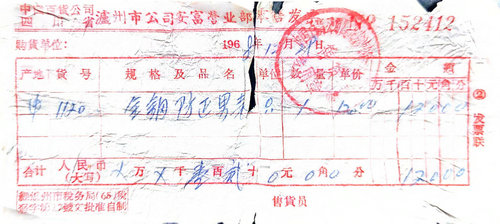 中国百货公司
四川省 泸州市公司安富营业部零售发票 №152412
购货单位: 196 年12月2 日
产地 货号 规格及品名 单位 数量 单价 金额
万千百十元角分
沪 1120 全钢防 男表 只 1 120.00 12000
合计 人民币(大写) 万 千 壹百贰十0元0角0分 12000
泸州市税务局(65)税
字第 号批准自制
售货员
②发票联